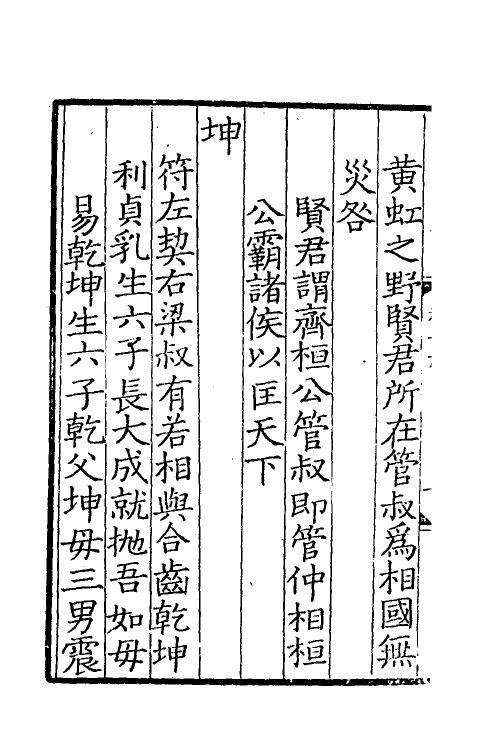 黄虹之野賢君所在管叔爲相國無
災咎
賢君謂齊桓公管叔即管仲相桓
公霸諸侯以匡天下
坤
符左契右梁叔有若相與合齒乾坤
利貞乳生六子長大成就抛吾如毋
易乾坤生六子乾父坤毋三男震